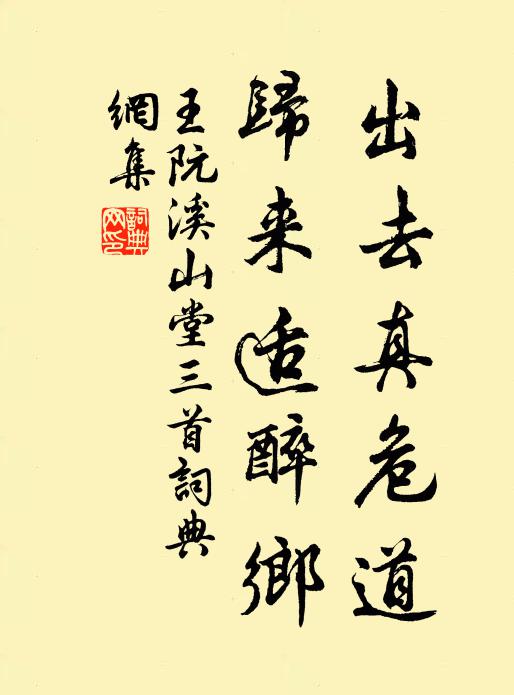 出去真危道
歸来适醉鄉
王阮溪山堂三首詞典
網集
詞典
网印